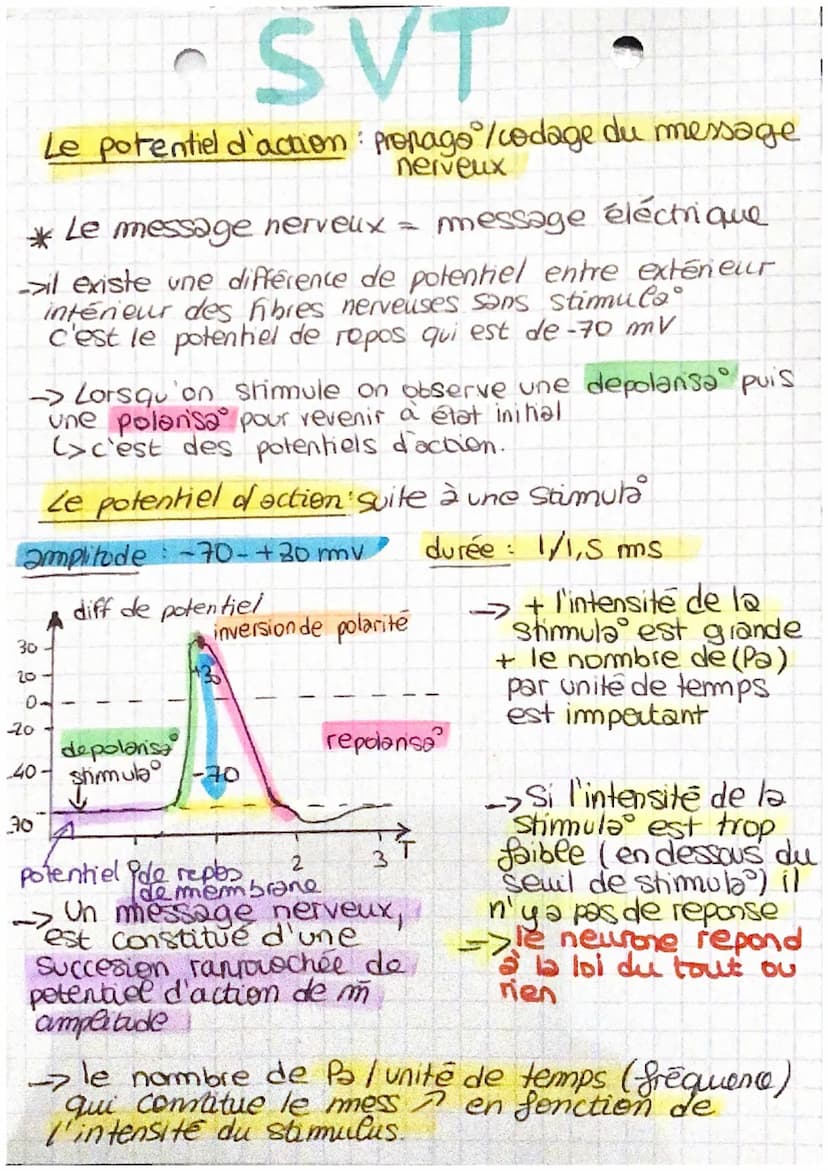 SVT
Le potentiel d'action : propag°/codage du message
nerveux
* Le message nerveux = message éléctrique
->il existe une différence de potentiel entre extérieur
intérieur des fibres nerveuses sans stimula°
c'est le potentiel de repos qui est de -70 mV
-> Lorsqu'on stimule on observe une depolarisa° puis
une polarisa° pour revenir à état initial
↳c'est des potentiels d'action.
Le potentiel d'action : suite à une stimula°
amplitude : -70-+30 mv
durée : 1/1,5 ms
diff de potentiel
inversion de polarité
30
20
0
-20
40
30
+30
-70
depolarisa°
stimula°
repolarisa°
1
2
3 T
potentiel de repos
de membrane
-> Un message nerveux,
est constitué d'une
succesion rapprochée de
potentiel d'action de m̄
amplitude
-> + l'intensité de la
stimula° est grande
+ le nombre de (Pa)
par unité de temps
est important
-> Si l'intensité de la
stimula° est trop
faible (en dessous du
seuil de stimula°) il
n'y a pas de reponse
=> le neurone repond
à la loi du tout ou
rien
-> le nombre de Pa / unité de temps (fréquence)
qui constitue le mess ↗ en fonction de
l'intensité du stimulus.